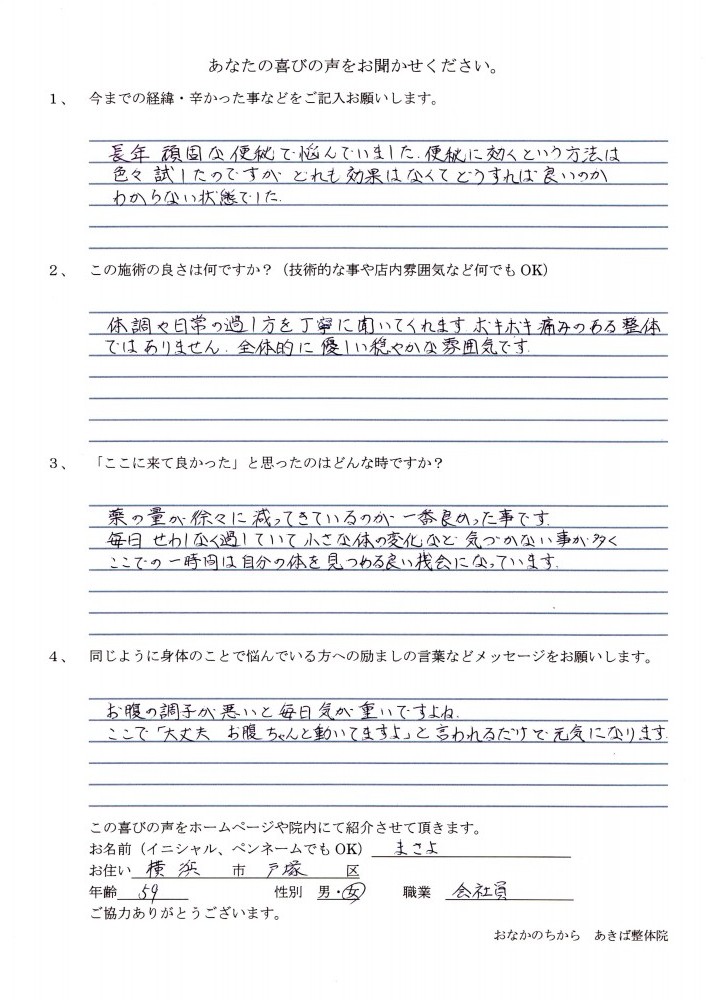 あなたの喜びの声をお聞かせください。
1、 今までの経緯・辛かった事などをご記入お願いします。
長年 頑固な便秘で悩んでいました。便秘に効くという方法は
色々試したのですが どれも効果はなくてどうすれば良いのか
わからない状態でした。
2、 この施術の良さは何ですか？（技術的な事や店内雰囲気など何でもOK）
体調や日常の過し方を丁寧に聞いてくれます。ボキボキ痛みのある整体
ではありません。全体的に優しい穏やかな雰囲気です。
3、 「ここに来て良かった」と思ったのはどんな時ですか？
薬の量が徐々に減ってきているのが一番良かった事です。
毎日せわしなく過していて小さな体の変化など気づかない事が多く
ここでの一時間は自分の体を見つめる良い機会になっています。
4、 同じように身体のことで悩んでいる方への励ましの言葉などメッセージをお願いします。
お腹の調子が悪いと毎日気が重いですよね。
ここで「大丈夫 お腹ちゃんと動いてますよ」と言われるだけで元気になります。
この喜びの声をホームページや院内にて紹介させて頂きます。
お名前（イニシャル、ペンネームでもOK） まさよ
お住い 横浜 市 戸塚 区
年齢 59 性別 男・女 職業 会社員
ご協力ありがとうございます。
おなかのちから あきば整体院